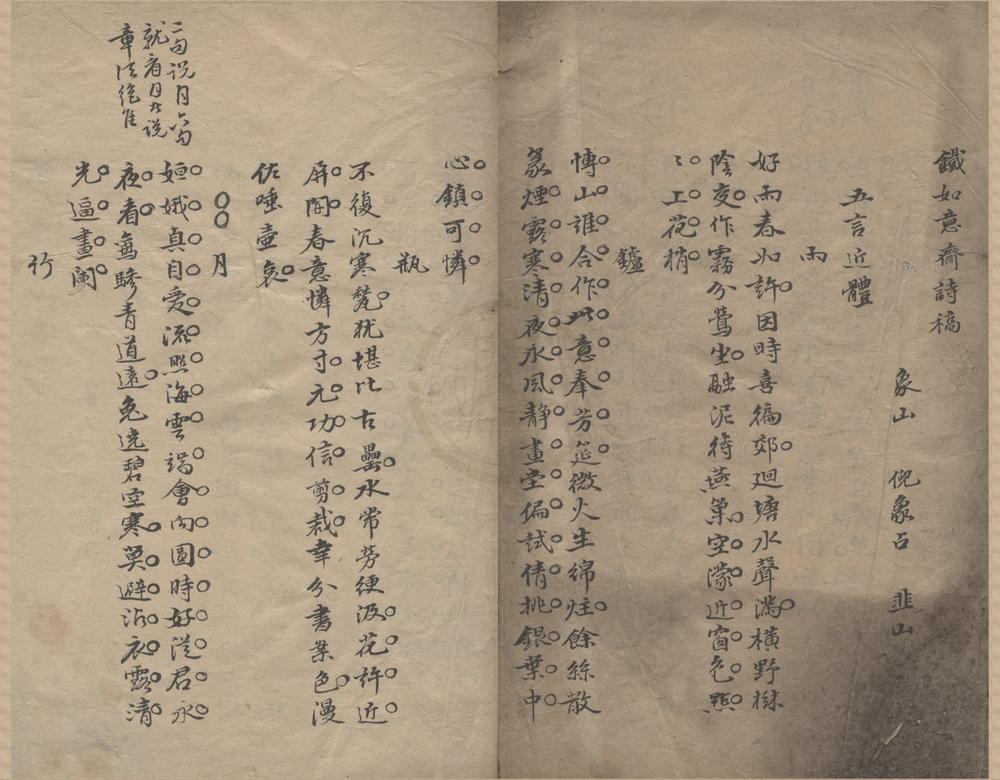 鐵如意齋詩稿
象山 倪象占 韭山
五言近體
雨
好雨春如許因時喜徧郊迴塘水聲滿橫野樹
陰交作霧分鶯坐融泥待燕巢空濛近窗色點
〻上花梢
鑪
博山誰合作此意奉芳筵微火生綿炷餘絲散
篆煙露寒清夜永風静畫堂偏試倩挑銀葉中
心鎮可憐
瓶
不復沉寒甃猶堪比古罍水常勞綆汲花許近
屏開春意憐方寸元功信剪裁幸分書案色漫
佐唾壺哀
月
姮娥真自愛流照海雲端會向圓時好從君永
夜看鸞驂青道遠兔遶碧空寒莫避沾衣露清
光逼畫闌
竹
二句說月六句
就看月者說
章法絕佳